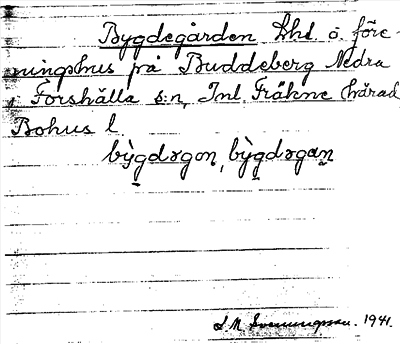 Bygdegården lht. o. före-
ningshus på Buddeberg Nedra
i Forshälla s:n, Inl. Fräkne härad
Bohus l.
bỳgdəgoṇ, bỳgdəgaṇ
S M Svenungsson. 1941.